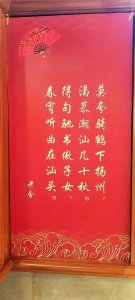 莫本骑鹤下扬州，
渴慕潮汕几十秋。
得句驰书傲子女，
春宵听曲在汕头。
老舍